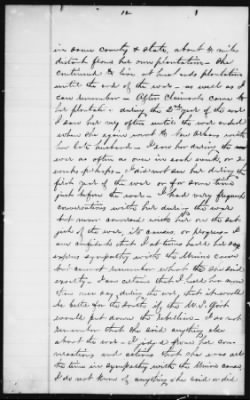 in same county & state, about 4 miles
distant from her own plantation – She
continued to live at her ends plantation
until the end of the war – as well as I
can remember – After Claimants came to
her plantation – during the 2nd year of the war
I saw her very often until the war ended
when she again went to New Orleans with
her late husband – I saw her during the
war as often as once in each week, or 2
weeks perhaps – I did not see her during the
first year of the war or for some time
just before the war – I had very frequent
conversations with her during the war
but never conversed with her on the sub
ject of the war, its causes, or progress – I
am confident that I at times heard her
express sympathy with the Union cause
but cannot remember what she said
exactly – I am certain that I heard her more
than once say during the war, that it would
be better for the South if the U.S. Govt
would put down the rebellion – I do not
remember that she said anything else
about the war – I judged from her con
versations and actions that she was all
the time in sympathy with the Union cause
I do not know of anything she said or did